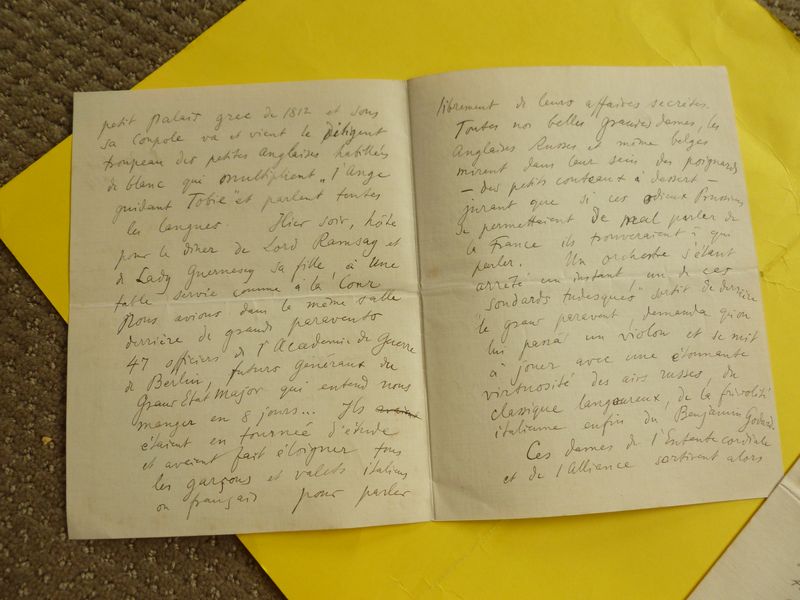 petit Palais grec de 1812 et sous
sa Coupole va et vient le diligent
troupeau des petites anglaises habillées
de blanc qui multiplient "l'Ange
guidant Tobie" et parlent toutes
les langues. Hier soir, hôte
pour le dîner de Lord Ramsay et
de Lady Guernesey sa fille, à une
table servie comme à la Cour
Nous avions dans la même salle
derrière de grands paravents
47 officiers de l'Académie de Guerre
de Berlin, futurs généraux du
Grand Etat Major qui entend nous
manger en 8 jours... Ils
étaient en tournée d'étude
et avaient fait éloigner tous
les garçons et valets italiens
ou français pour parler
librement de leurs affaires secrètes.
Toutes nos belles grandes dames, les
Anglaises Russes et même belges
mirent dans leur sein des poignards
— des petits couteaux à dessert —
jurant que si ces odieux Prussiens
se permettaient de mal parler de
la France ils trouveraient à qui
parler. Un orchestre s'étant
arrêté un instant, un de ces
"soudards tudesques" sortit de derrière
le grand paravent, demanda qu'on
lui passât un violon et se mit
à jouer avec une étonnante
virtuosité des airs russes, du
classique langoureux, de la frivolité
italienne enfin du Benjamin Godard.
Ces dames de l'Entente cordiale
et de l'Alliance sortirent alors